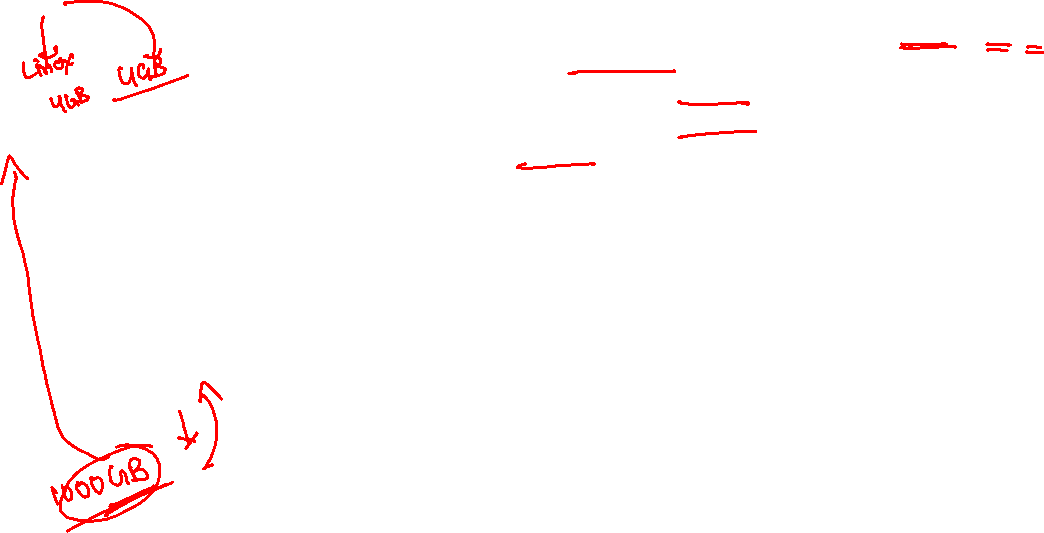 Linux 4GB
4GB
1000GB